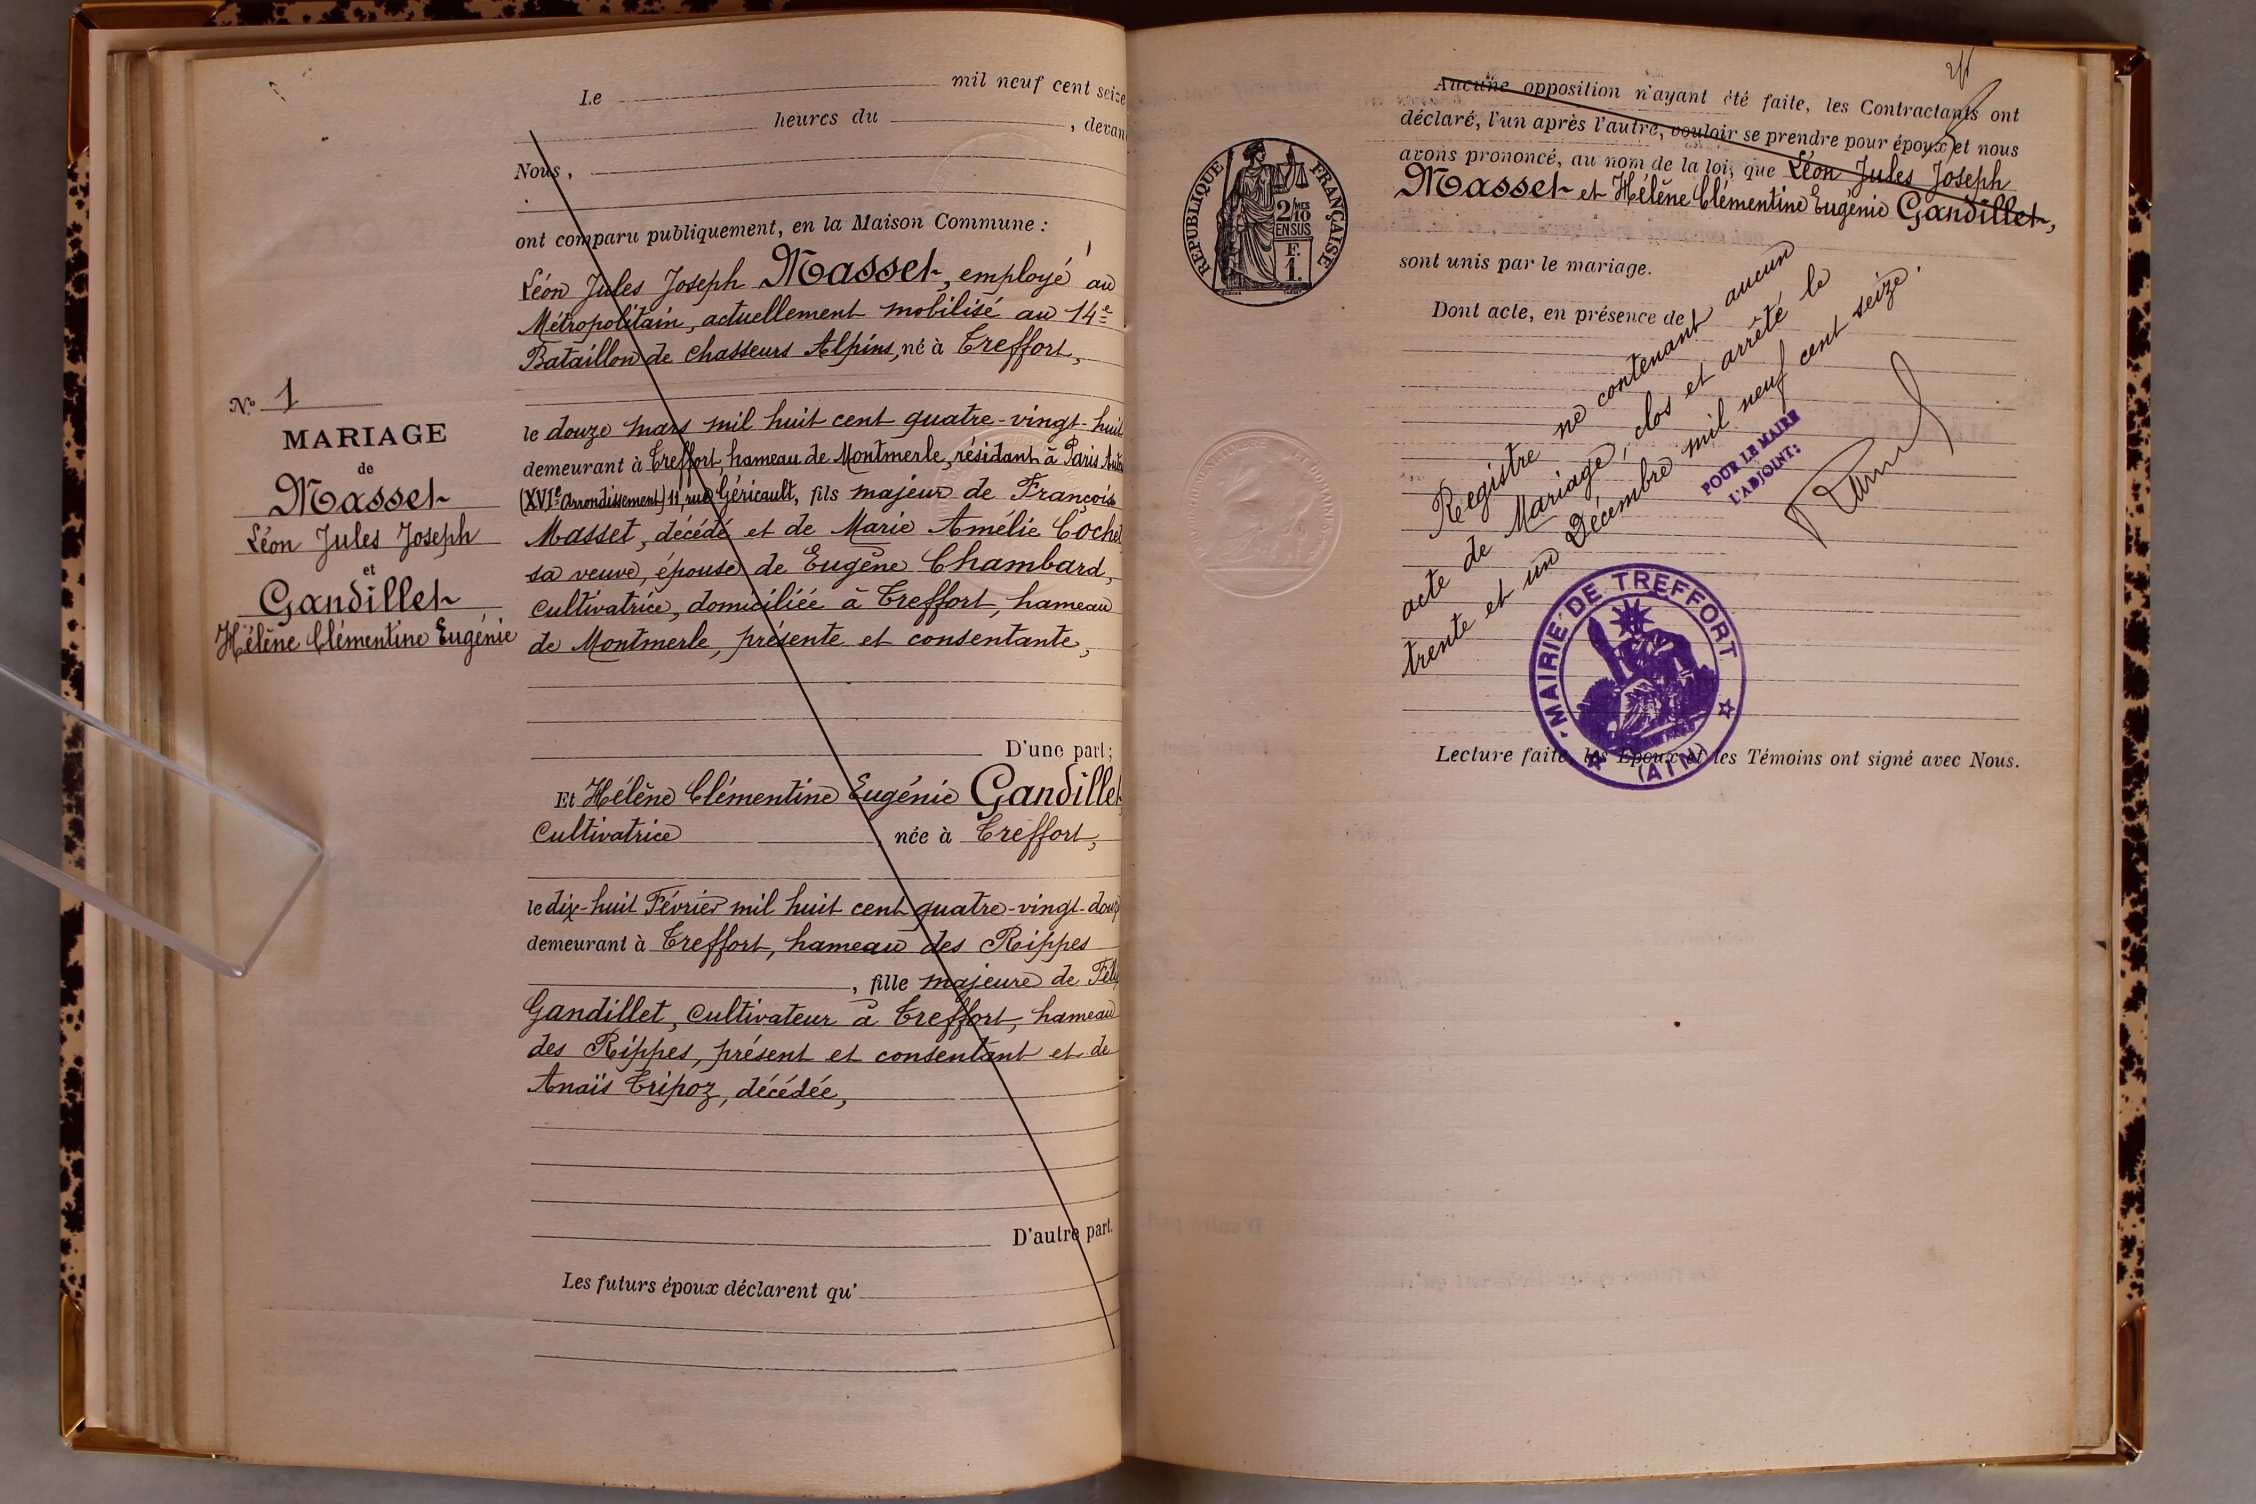 Le mil neuf cent seize
heures du , devant
Nous,
ont comparu publiquement, en la Maison Commune :
Léon Jules Joseph Masset, employé au
Métropolitain, actuellement mobilisé au 14e
Bataillon de chasseurs Alpins, né à Treffort,
No 1
MARIAGE
de
Masset
Léon Jules Joseph
et
Gandillet
Hélène Clémentine Eugénie
le douze mars mil huit cent quatre-vingt-huit
demeurant à Treffort, hameau de Montmerle, résidant à Paris
(XVIe arrondissement) 11, rue Géricault, fils majeur de François
Masset, décédé et de Marie Amélie Cochet
sa veuve, épouse de Eugène Chambard,
cultivatrice, domiciliée à Treffort, hameau
de Montmerle, présente et consentante,
D'une part;
Et Hélène Clémentine Eugénie Gandillet
cultivatrice , née à Treffort,
le dix-huit Février mil huit cent quatre-vingt-douze
demeurant à Treffort, hameau des Rippes
, fille majeure de Félix
Gandillet, cultivateur à Treffort, hameau
des Rippes, présent et consentant et de
Anaïs Tripoz, décédée,
D'autre part.
Les futurs époux déclarent qu'
Aucune opposition n'ayant été faite, les Contractants ont
déclaré, l'un après l'autre, vouloir se prendre pour époux, et nous
avons prononcé, au nom de la loi, que Léon Jules Joseph
Masset et Hélène Clémentine Eugénie Gandillet,
sont unis par le mariage.
Dont acte, en présence de
RÉPUBLIQUE FRANÇAISE
2/10 MES
EN SUS
F.
1.
Registre ne contenant aucun
acte de Mariage, clos et arrêté le
trente et un Décembre mil neuf cent seize.
POUR LE MAIRE
L'ADJOINT:
MAIRIE DE TREFFORT
(AIN)
Lecture faite, les Epoux et les Témoins ont signé avec Nous.